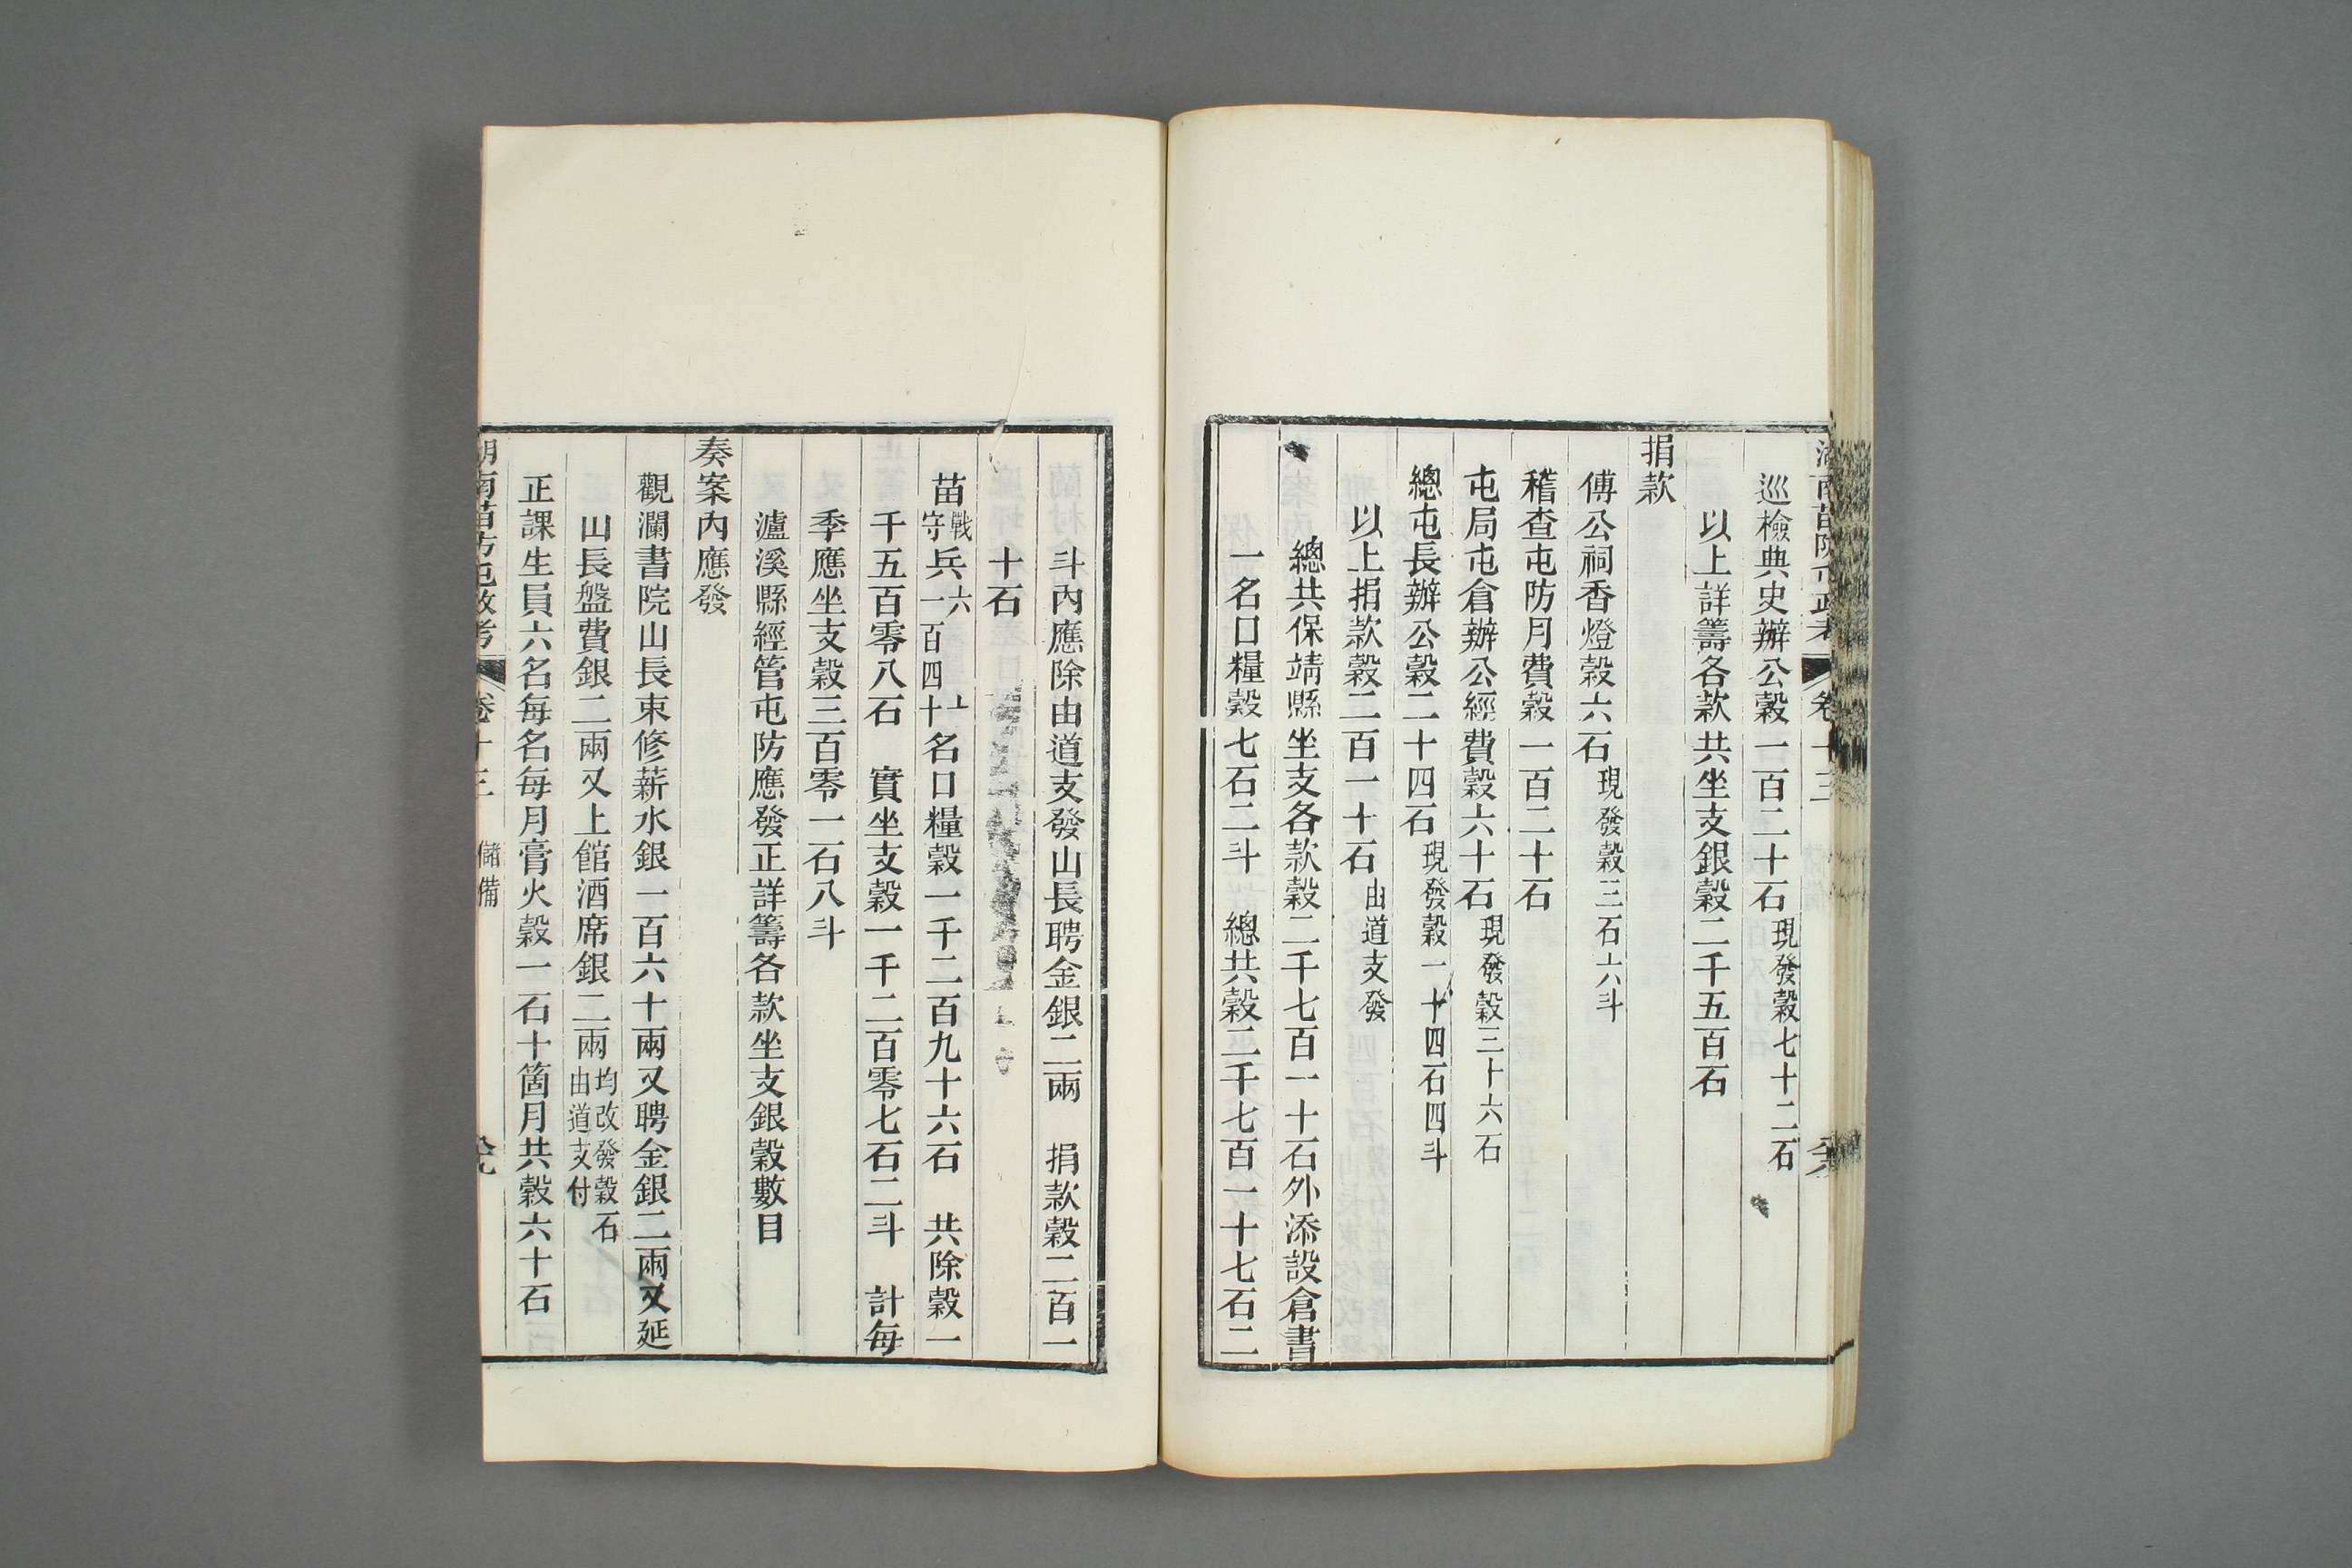 巡檢典史辦公穀一百二十石現發穀七十二石
以上詳籌各款共坐支銀穀二千五百石
捐款
傅公祠香燈穀六石現發穀三石六斗
稽查屯防月費穀一百二十石
屯局屯倉辦公經費穀六十石現發穀三十六石
總屯長辦公穀二十四石現發穀一十四石四斗
以上捐款穀二百一十石由道支發
總共保靖縣坐支各款穀二千七百一十石外添設倉書
一名口糧穀七石二斗　總共穀二千七百一十七石二
斗內應除由道支發山長聘金銀二兩　捐款穀二百一
十石
苗戰守兵六一百四十名口糧穀一千二百九十六石　共除穀一
千五百零八石　實坐支穀一千二百零七石二斗　計每
季應坐支穀三百零一石八斗
瀘溪縣經管屯防應發正詳籌各款坐支銀穀數目
奏案內應發
觀瀾書院山長束修薪水銀一百六十兩又聘金銀二兩又延
山長盤費銀二兩又上館酒席銀二兩均改發穀石由道支付
正課生員六名每名每月膏火穀一石十箇月共穀六十石
湖南苗防屯政考　卷十三　儲備